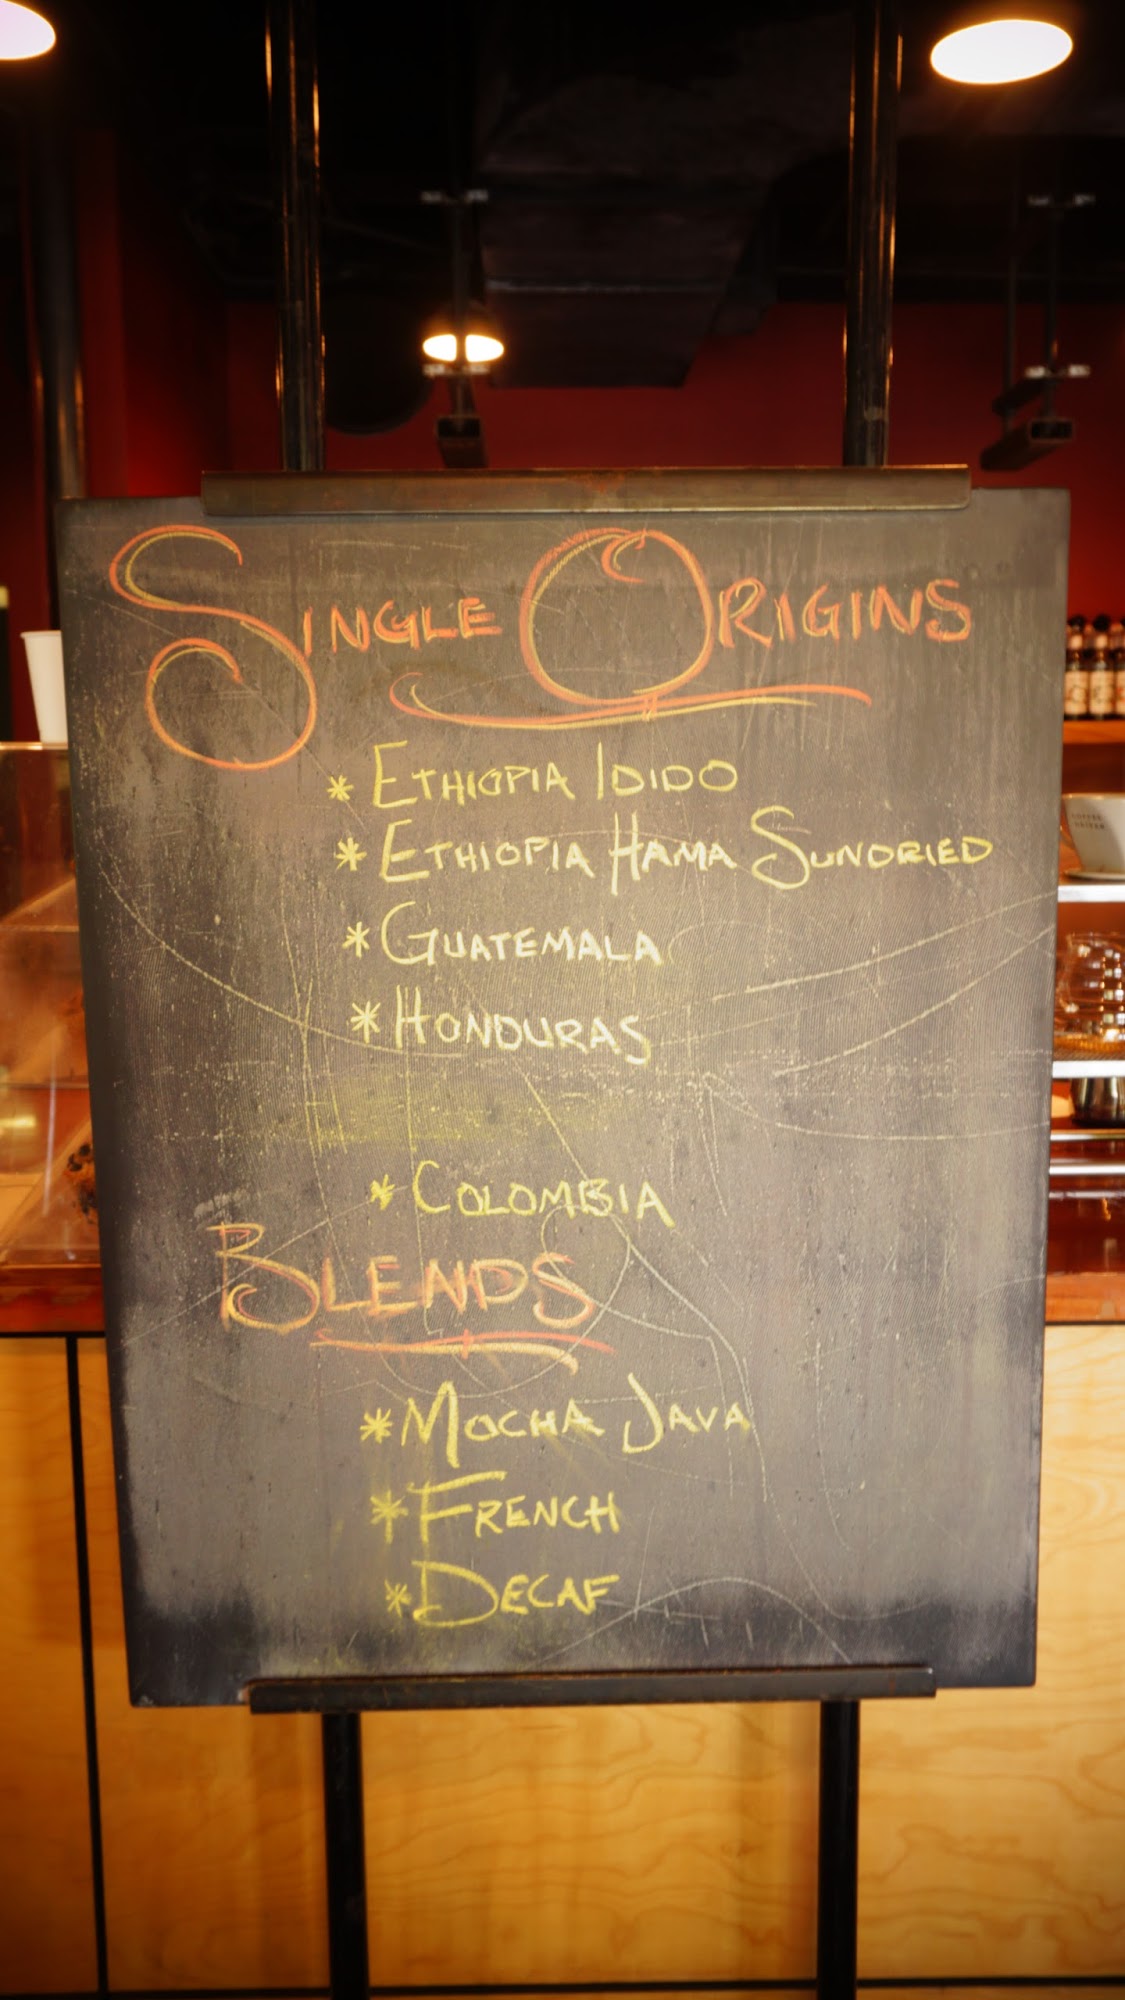 SINGLE ORIGINS
* ETHIOPIA IDIDO
* ETHIOPIA HAMA SUNDRIED
* GUATEMALA
* HONDURAS
* COLOMBIA
BLENDS
* MOCHA JAVA
* FRENCH
* DECAF